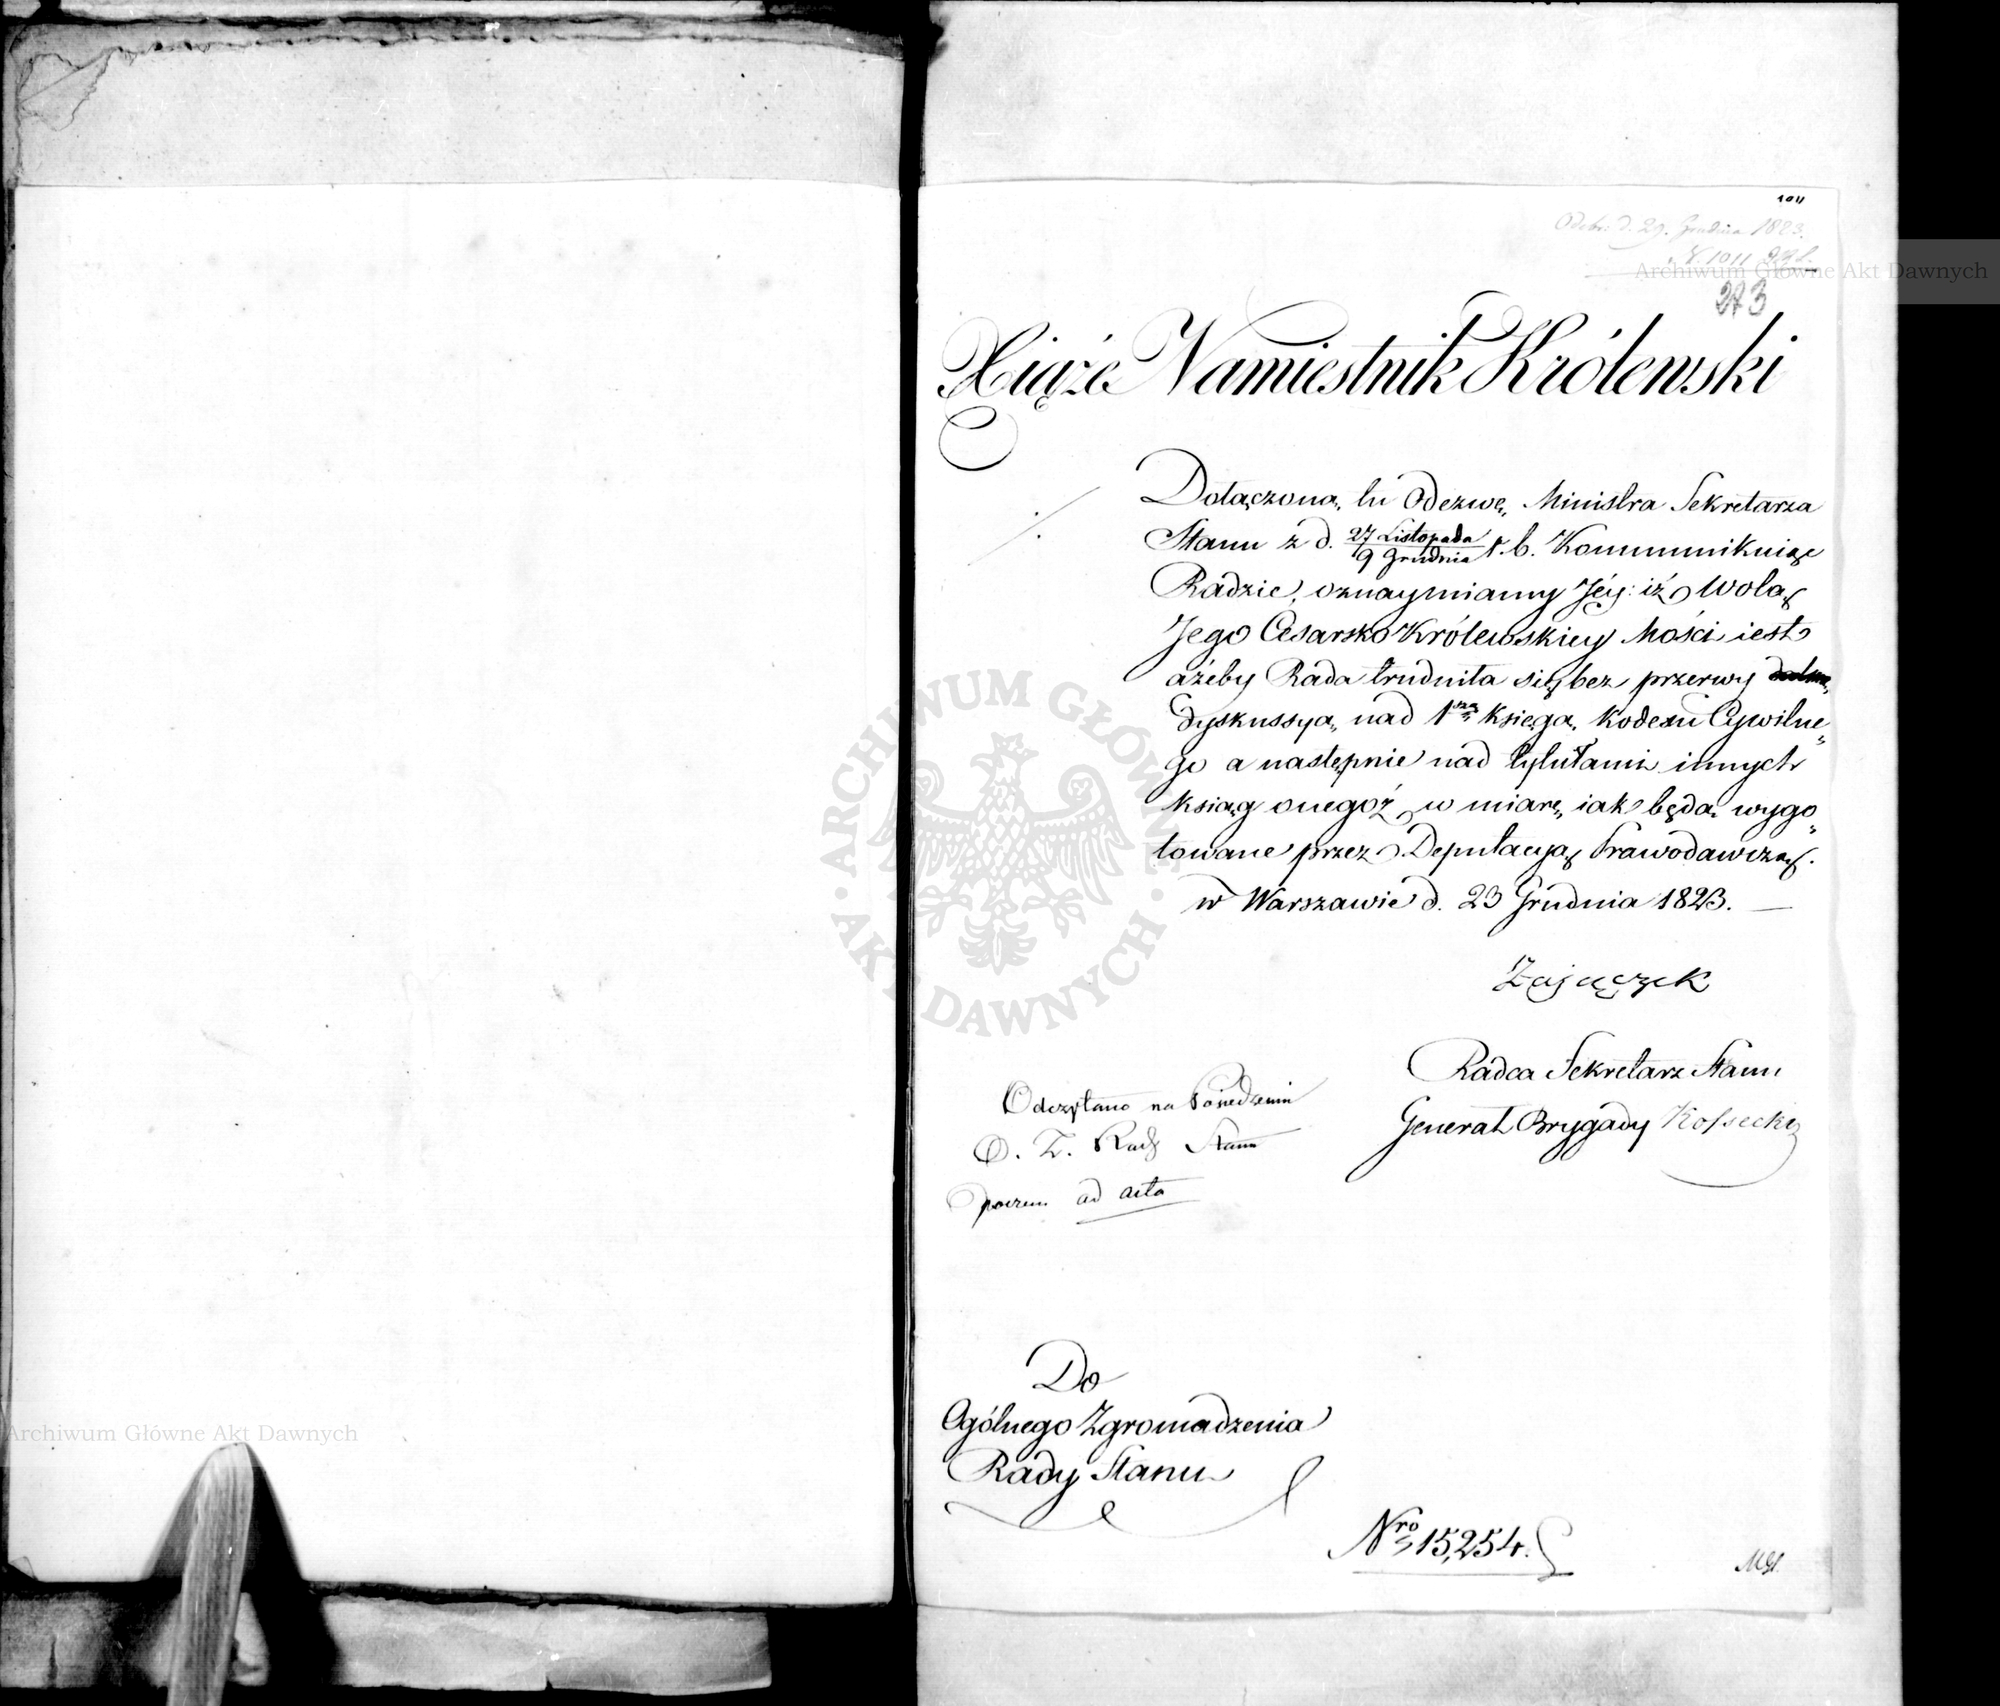 1011
Odebr: d. 29. Grudnia 1823.
N. 1011
273
Xiąże Namiestnik Królewski
Dołączoną tu Odezwę Ministra Sekretarza
Stanu z d. 27 Listopada / 9 Grudnia r. b. Kommunikuiąc
Radzie, oznaymiamy Jéy: iż Wolą
Jego Cesarsko Królewskiey Mości iest
ażeby Rada trudniła się bez przerwy
dyskussyą nad 1szą Księgą Kodexu Cywilne„
go a następnie nad tytułami innych
Ksiąg onegóż, w miarę iak będą wygo„
towane przez Deputacyą Prawodawczą.
w Warszawie d. 23 Grudnia 1823.
Zajączek
Radca Sekretarz Stanu
Generał Brygady Kossecki
Odczytano na Posiedzeniu
O. Z. Rady Stanu
poczem ad acta
Do
Ogólnego Zgromadzenia
Rady Stanu
Nro 15,254.
Archiwum Główne Akt Dawnych
Archiwum Główne Akt Dawnych
ARCHIWUM GŁÓWNE · AKT DAWNYCH ·